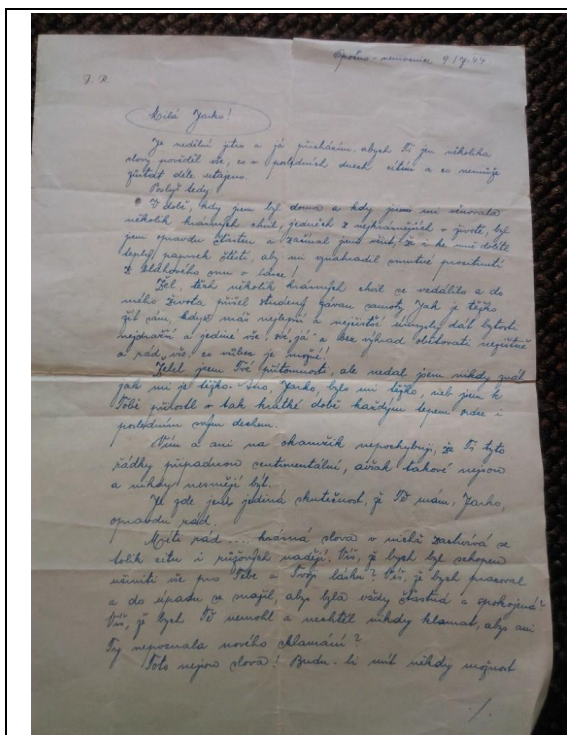 Opočno - nemocnice 9./7.44
J. R.
Milá Jarko!
Je nedělní jitro a já přicházím, abych Ti jen několika
slovy pověděl vše, co v posledních dnech cítím a co nemůže
zůstat déle utajeno.
Poslyš tedy.
V době, kdy jsem byl doma a kdy jsme mi věnovala
několik krásných chvil, jedněch z nejkrásnějších v životě, byl
jsem opravdu šťasten a začínal jsem věřit, že i ke mně dolétne
teplý paprsek štěstí, aby mi vynahradil smutné procitnutí
z blahového snu o lásce!
Žel, těch několik krásných chvil se vzdálilo a do
mého života přišel studený závan samoty. Jak je těžko
žít sám, když máš nejlepší a nejčistší úmysly dát bytosti
nejdražší a jediné vše, své „já“ a bez výhrad obětovati nezištně
a rád vše, co vůbec je možné!
Želel jsem Tvé přítomnosti, ale nedal jsem nikdy znát
jak mi je těžko. Ano, Jarko, bylo mi těžko, neb jsem k
Tobě přirostl v tak krátké době každým tepem srdce i
posledním svým dechem.
Vím a ani na okamžik nepochybuji, že Ti tyto
řádky připadnou sentimentální, avšak takové nejsou
a nikdy nesmějí být.
Je zde jen jediná skutečnost, že Tě mám, Jarko,
opravdu rád.
Míti rád .... krásná slova v nichž zachvívá se
tolik citu i růžových nadějí. Víš, že bych byl schopen
učiniti vše pro Tebe a Tvoji lásku? Víš, že bych pracoval
a do úpadu se snažil, abys byla vždy šťastná a spokojená?
Víš, že bych Tě nemohl a nechtěl nikdy klamat, abys ani
Ty nepoznala nového zklamání?
Toto nejsou slova! Budu-li mít někdy možnost
./.